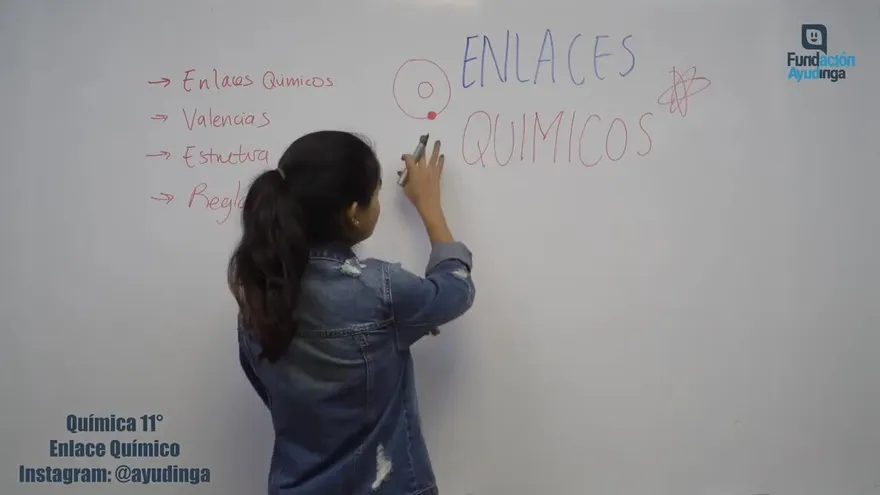 ENLACES
QUIMICOS
→ Enlaces Quimicos
→ Valencias
→ Estructura
→
Fundación
Ayudinga
Química 11°
Enlace Químico
Instagram: @ayudinga